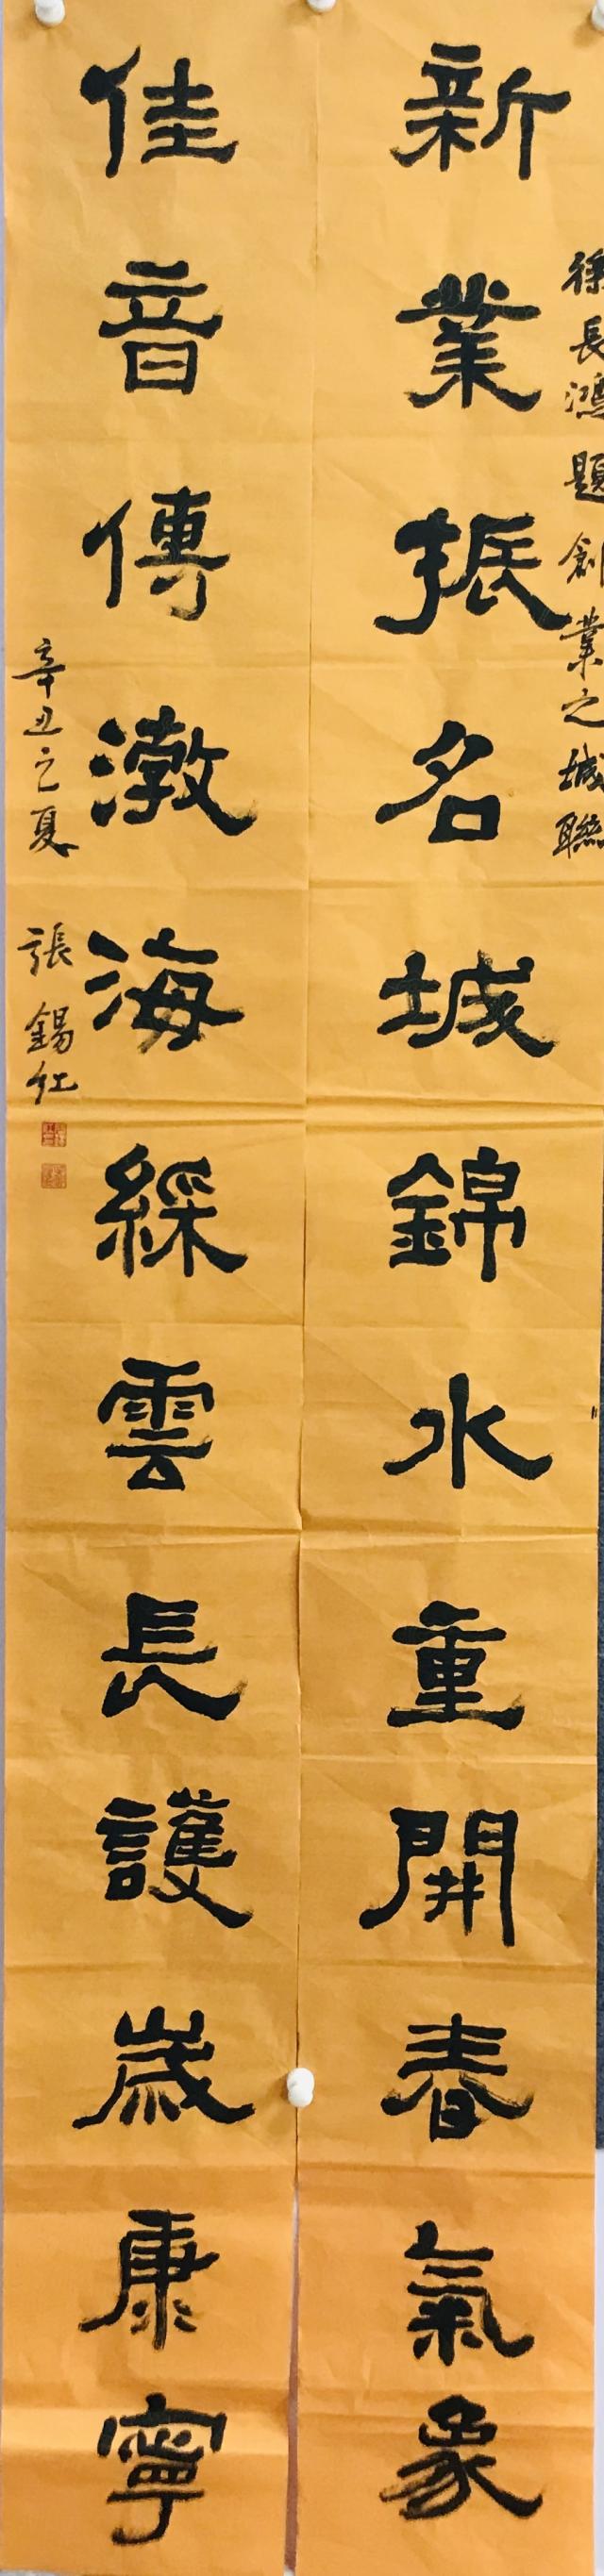 徐長鴻題創業之城聯
新業振名城錦水重開春氣象
佳音傳瀚海綵雲長護歲康寧
辛丑之夏 張錫紅